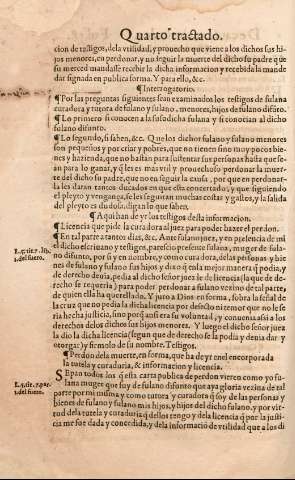 Quarto tractado.
cion de testigos, dela vtilidad, y prouecho que viene a los dichos sus hi
jos menores, en perdonar, y no seguir la muerte del dicho su padre que
su merced mandasse recebir la dicha informacion y recebida la mande
dar signada en publica forma. Y para ello, &c.
¶ Interrogatorio.
¶ Por las preguntas siguientes sean examinados los testigos de fulana
curadora y tutora de fulano y fulano, menores, hijos de fulano difũto.
¶ Lo primero si conocen a la susodicha fulana y si conocian al dicho
fulano difunto.
¶ Lo segundo, si saben, &c. Que los dichos fulano y fulano menores
son pequeños y por criar y pobres, que no tienen sino muy pocos bie-
nes y hazienda, que no bastan para sustentar sus personas hasta que se-
an para lo ganar, y q̃ les es mas vtil y prouechoso perdonar la muer-
te del dicho su padre, que no en seguir la causa, por que en perdonar-
la les daran tantos ducados en que esta concertado, y que siguiendo
el pleyto y vengança, se les seguiran muchas costas y gastos, y la salida
del pleyto es dudosa, digan lo que saben.
¶ Aqui han de yr los testigos desta informacion.
¶ Licencia que pide la curadora al juez para poder hazer el perdon.
¶ En tal parte a tantos dias, &c. Ante fulano juez, y en presencia de mi
L.5. tit. 7. lib.
1. del fuero.
el dicho escriuano y testigos, parescio presente fulana, muger de fula-
no difunto, por si y en nombre, y como curadora, de las personas y bie
nes de fulano y fulano sus hijos y dixo q̃ en la mejor manera q̃ podia, y
de derecho deuia, pedia al dicho señor juez le de licencia (la que de de-
recho se requeria) para poder perdonar a fulano vezino de tal parte,
de quien ella ha querellado. Y juro a Dios en forma, sobre la señal de
la cruz que no pedia la dicha licencia por defecto ni temor que no le se
ria hecha justicia, sino porq̃ ansi era su voluntad, y conuenia assi a los
derechos delos dichos sus hijos menores. Y luego el dicho señor juez
la dio la dicha licencia (segun que de derecho se la podia y deuia dar y
otorgar) y firmolo de su nombre. Testigos.
¶ Perdon dela muerte, en forma, que ha de yr en el encorporada
la tutela y curaduria, & informacion y licencia.
SEpan todos los q̃ esta carta publica de perdon vieren como yo fu-
1. del fuero.
lana muger que fuy de fulano difunto que aya gloria vezina de tal
parte por mi misma y como tutora y curadora q̃ soy de las personas y
bienes de fulano y fulano mis hijos, y hijos del dicho fulano, y por vir-
tud dela tutela y curaduria q̃ dellos tengo y dela licencia q̃ por la justi-
cia me fue dada y concedida, y dela informaciõ de vtilidad que a los di